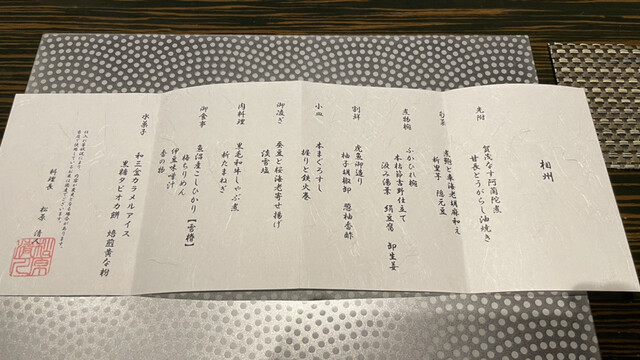 相州
先附
賀茂なす阿蘭陀煮
甘長とうがらし油焼き
旬菜
車海老胡麻和え
新里芋 隠元豆
煮物椀
ふかひれ椀
本枯節吉野仕立て
汲み湯葉 絹豆腐 卸生姜
割鮮
虎魚御造り
柚子胡椒卸 葱柚香酢
小皿
本まぐろすし
握りと鉄火巻
御凌ぎ
蚕豆と桜海老寄せ揚げ
淡雪塩
肉料理
黒毛和牛しゃぶ煮
新たまねぎ
御食事
魚沼産こしひかり【雪椿】
梅ちりめん
伊豆味噌汁
香の物
水菓子
和三盆カラメルアイス
黒糖タピオカ餅 焙煎黄な粉
料理長 松本